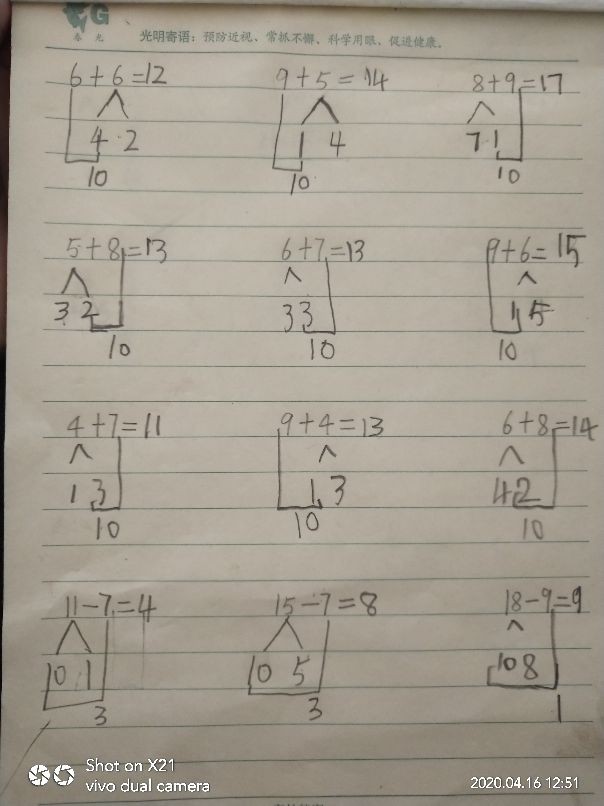 G
春光
光明寄语：预防近视、常抓不懈、科学用眼、促进健康。
6+6=12 9+5=14 8+9=17
4 2 1 4 7 1
10 10 10
5+8=13 6+7=13 9+6=15
3 2 3 3 1 5
10 10 10
4+7=11 9+4=13 6+8=14
1 3 1 3 4 2
10 10 10
11-7=4 15-7=8 18-9=9
10 1 10 5 10 8
3 3 1
Shot on X21
vivo dual camera
2020.04.16 12:51